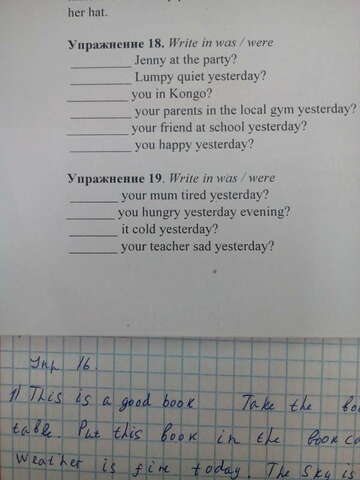 her hat.
Упражнение 18. Write in was / were
_________ Jenny at the party?
_________ Lumpy quiet yesterday?
_________ you in Kongo?
_________ your parents in the local gym yesterday?
_________ your friend at school yesterday?
_________ you happy yesterday?
Упражнение 19. Write in was / were
_______ your mum tired yesterday?
_______ you hungry yesterday evening?
_______ it cold yesterday?
_______ your teacher sad yesterday?
Упр 16.
1) This is a good book Take the
table. Put this book in the
Weather is fine today. The sky is